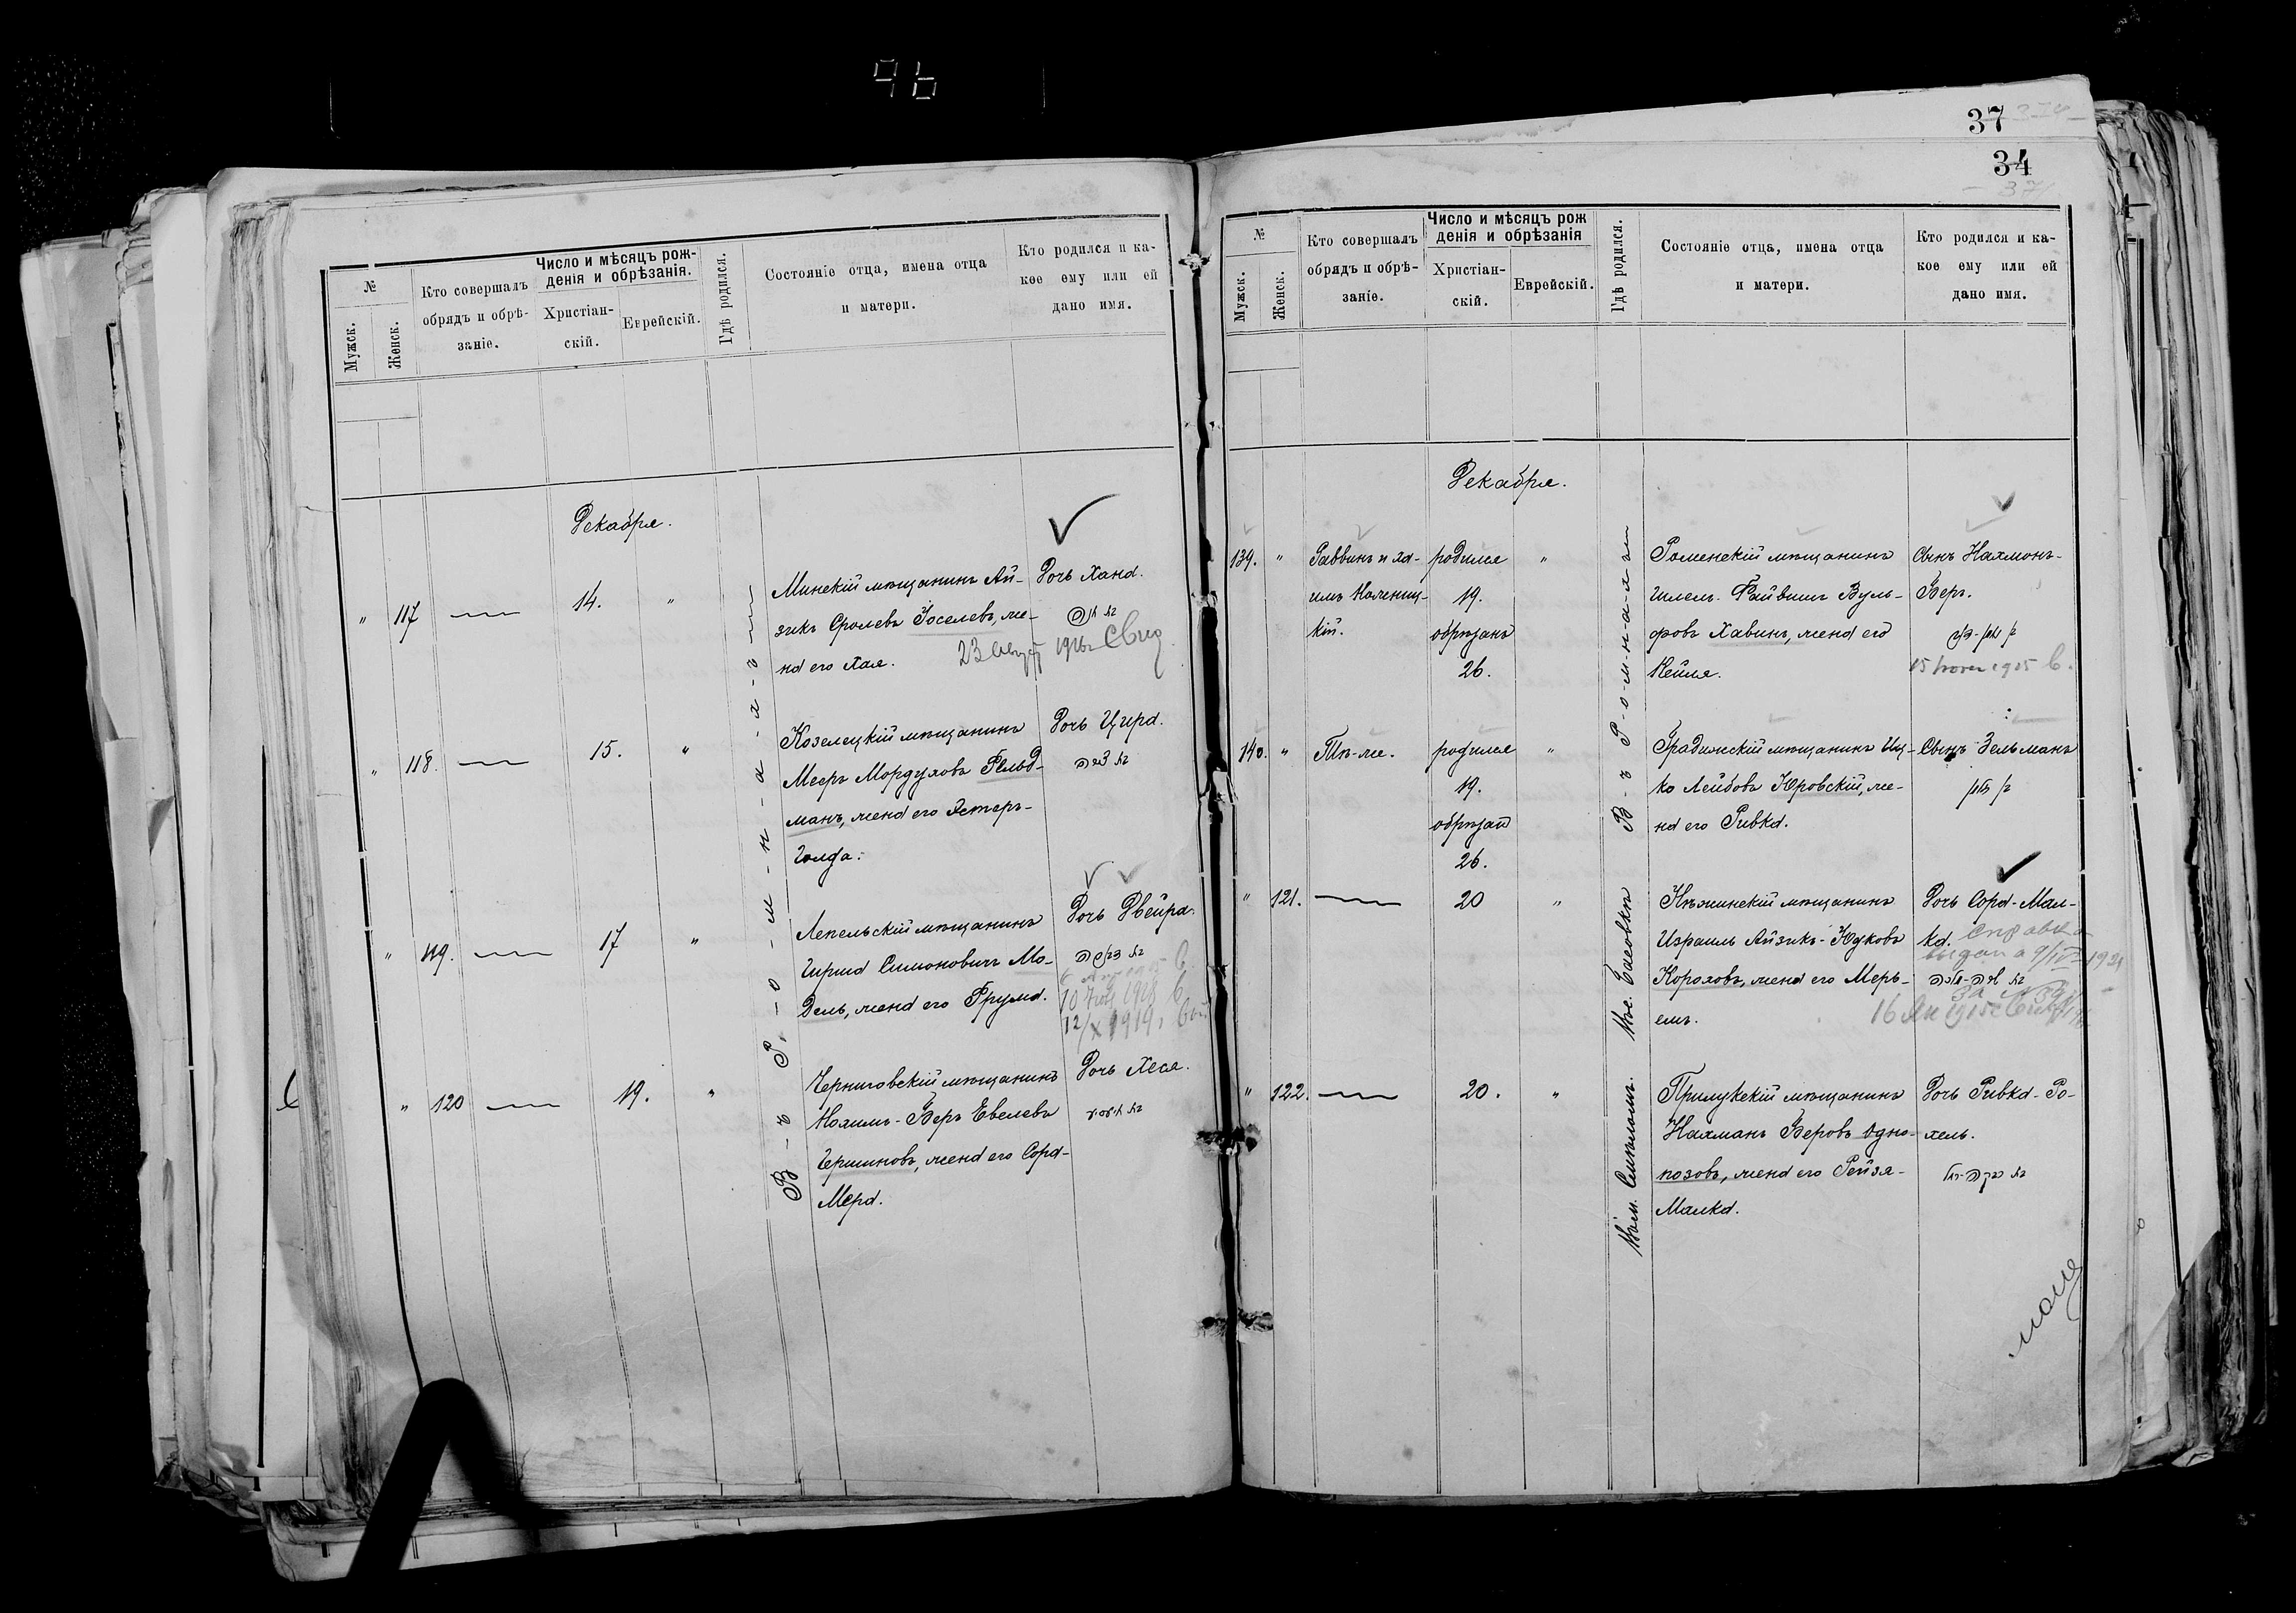 96
№
Мужск.
Женск.
Кто совершалъ
обрядъ и обрѣ-
заніе.
Число и мѣсяцъ рож-
денія и обрѣзанія.
Христіан-
скій.
Еврейскій.
Гдѣ родился.
Состояніе отца, имена отца
и матери.
Кто родился и ка-
кое ему или ей
дано имя.
Декабря.
В-ъ Р-о-м-н-а-х-ъ
" 117 — 14. "
Минскій мѣщанинъ Ай-
зикъ Сролевъ Іоселевъ, же-
на его Хая.
Дочь Хана.
בת חנה
23 1916 Свид.
" 118. — 15. "
Козелецкій мѣщанинъ
Мееръ Мордуховъ Гельд-
манъ, жена его Эстеръ-
Голда.
Дочь Цира.
בת צירה
" 119. — 17 "
Лепельскій мѣщанинъ
Гиршъ Симоновичъ Мо-
дель, жена его Фрума.
Дочь Двейра.
בת דבורה
10 1918
12/X 1919
" 120 — 19. "
Черниговскій мѣщанинъ
Нохимъ-Беръ Евелевъ
Гершновъ, жена его Сора-
Мера.
Дочь Хеся.
37
34
№
Мужск.
Женск.
Кто совершалъ
обрядъ и обрѣ-
заніе.
Число и мѣсяцъ рож
денія и обрѣзанія
Христіан-
скій.
Еврейскій.
Гдѣ родился.
Состояніе отца, имена отца
и матери.
Кто родился и ка-
кое ему или ей
дано имя.
Декабря.
В-ъ Р-о-м-н-а-х-ъ
139. "
Раввинъ и Ха-
имъ
кій.
родился
19.
обрѣзанъ
26.
"
Роменскій мѣщанинъ
Гилель-Файвишъ Вуль-
фовъ Хавинъ, жена его
Нейля.
Сынъ Нахмонъ-
Беръ.
בן נחמן-בער
15 1905
140. "
Тѣ-же.
родился
19.
обрѣзан
26.
"
Градижскій мѣщанинъ Иц-
ко Лейбовъ Юровскій, же-
на его Ривка.
Сынъ Зельманъ
בן זלמן
" 121. — 20 "
Нѣжинскій мѣщанинъ
Израиль Айзикъ-Юдковъ
Короховъ, жена его Меръ-
емъ.
Дочь Сора-Мал-
ка.
справка
выдана 9/IV 1921
בת שרה-מלכה
16 1915
" 122. — 20. "
Прилукскій мѣщанинъ
Нахманъ Беровъ Одно-
позовъ, жена его Рейзя-
Малка.
Дочь Ривка-Ро-
хель.
בת רבקה-רחל